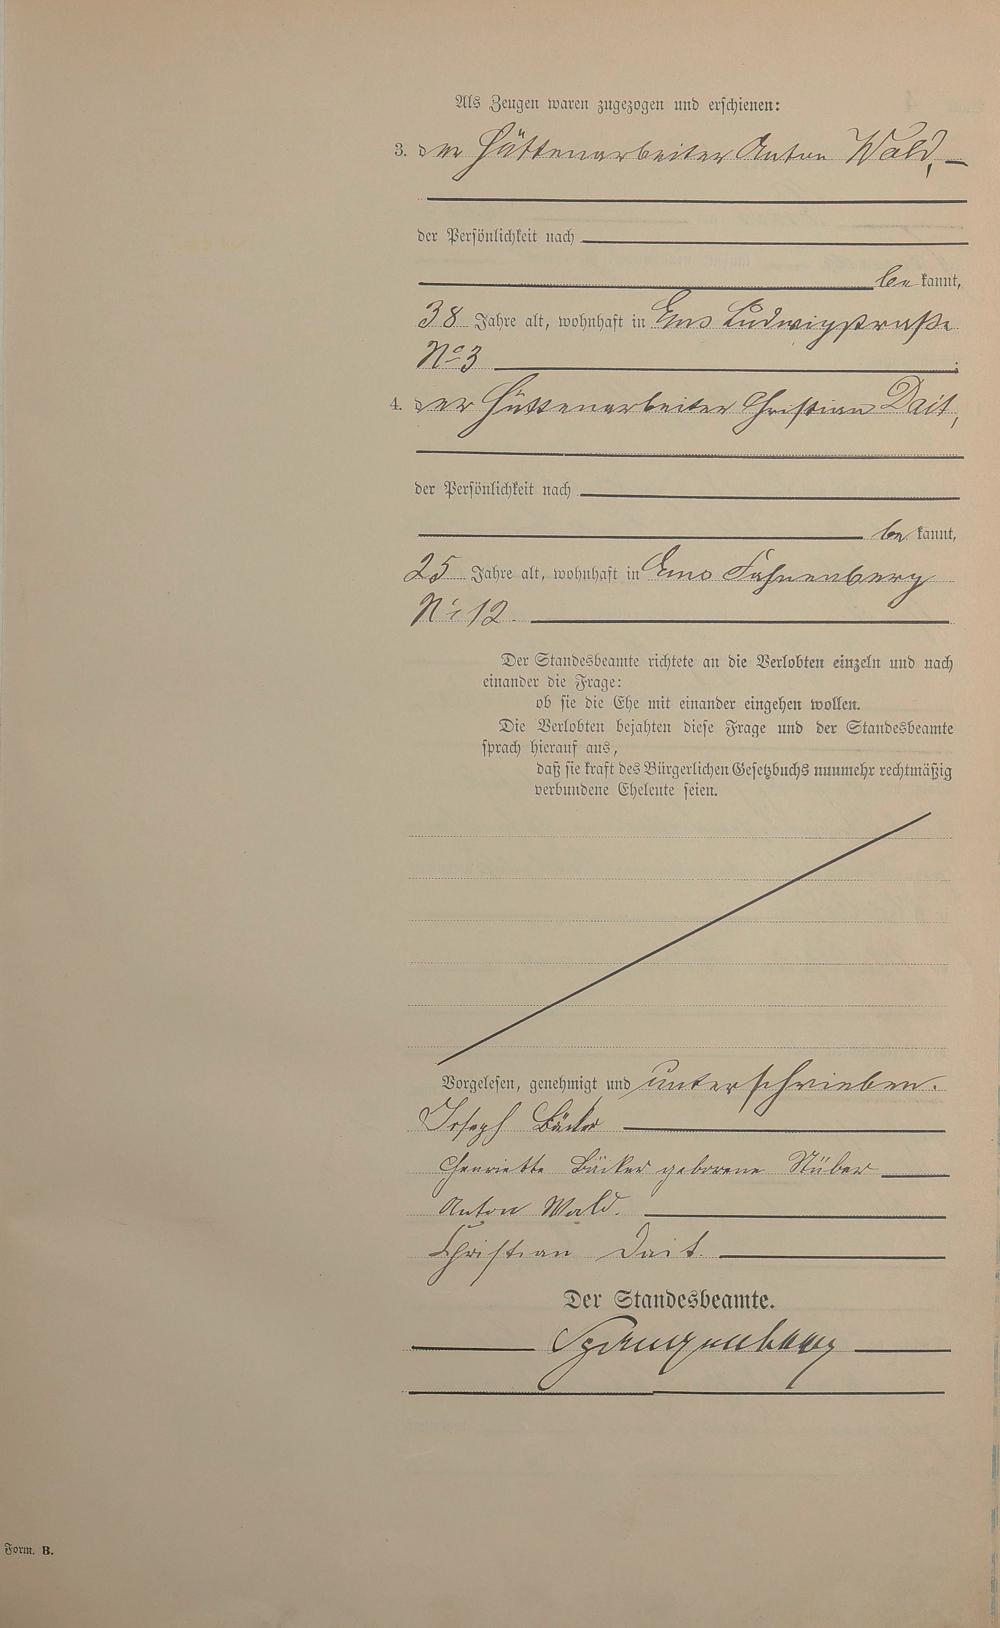 Als Zeugen waren zugezogen und erschienen:
3. der Hüttenarbeiter Anton Wald,
der Persönlichkeit nach
be kannt,
38 Jahre alt, wohnhaft in Ems Ludwigstraße
No 3 ;
4. der Hüttenarbeiter Christian Dait,
der Persönlichkeit nach
be kannt,
25 Jahre alt, wohnhaft in Ems Fahnenberg
No 12
Der Standesbeamte richtete an die Verlobten einzeln und nach
einander die Frage:
ob sie die Ehe mit einander eingehen wollen.
Die Verlobten bejahten diese Frage und der Standesbeamte
sprach hierauf aus,
daß sie kraft des Bürgerlichen Gesetzbuchs nunmehr rechtmäßig
verbundene Eheleute seien.
Vorgelesen, genehmigt und unterschrieben.
Joseph Bäcker
Henriette Bäcker geborene Stüber
Anton Wald.
Christian Dait.
Der Standesbeamte.
Form. B.